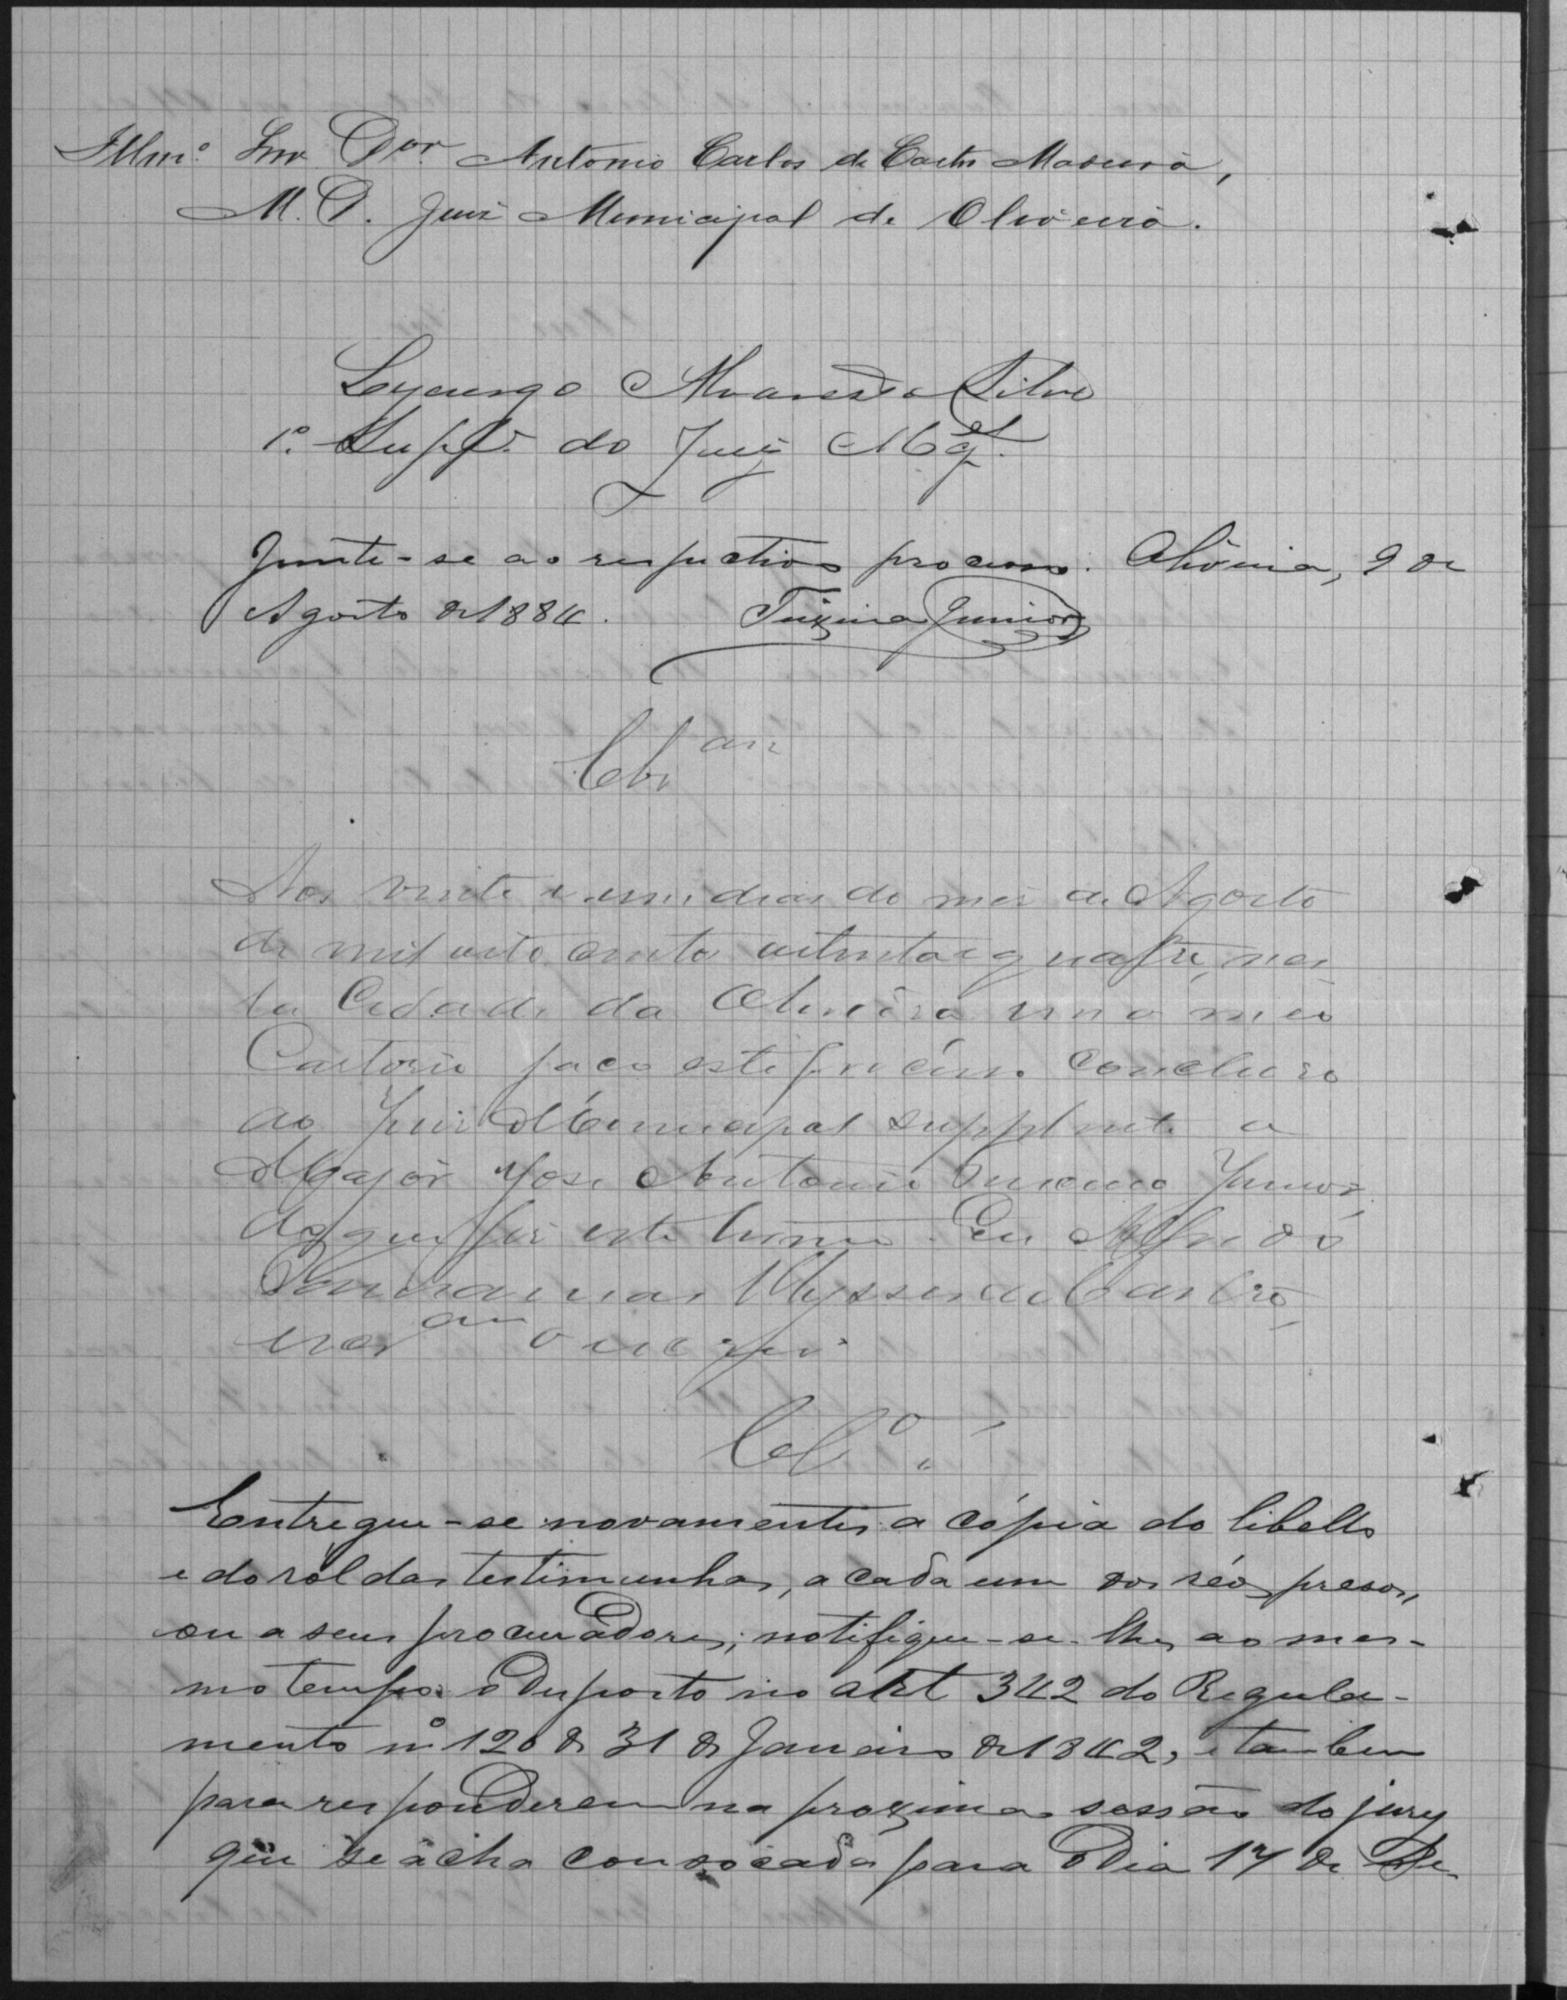 Illmº. Snr Dor. Antonio Carlos de Castro Madeira,
M. D. Juiz Municipal de Oliveira.
Lycurgo Alvares da Silva
1º. Suppe. do Juiz Mal.
Junte-se ao respectivo processo. Oliveira, 9 de
Agosto de 1884. Teixeira Junior
Clsam
Aos vinte e um dias do mez de Agosto
de mil oito centos oitenta e quatro, nes
ta Cidade da Oliveira em o meu
Cartorio faço este concluso
ao Juiz Municipal supplente o
Major José Antonio Teixeira Junior,
do que fiz este termo. Eu Alfredo
Ulysses de Castro,
escram o escrevi.
Clo.
Entregue-se novamente a cópia do libello
e do ról das testimunhas, a cada um dos réos presos,
ou a seus procuradores; notifique-se-lhes ao mes-
mo tempo o disposto no art 342 do Regula-
mento nº 120 de 31 de Janeiro de 1842, e tambem
para responderem na proxima sessão do jury
que se acha convocada para o dia 17 de De-